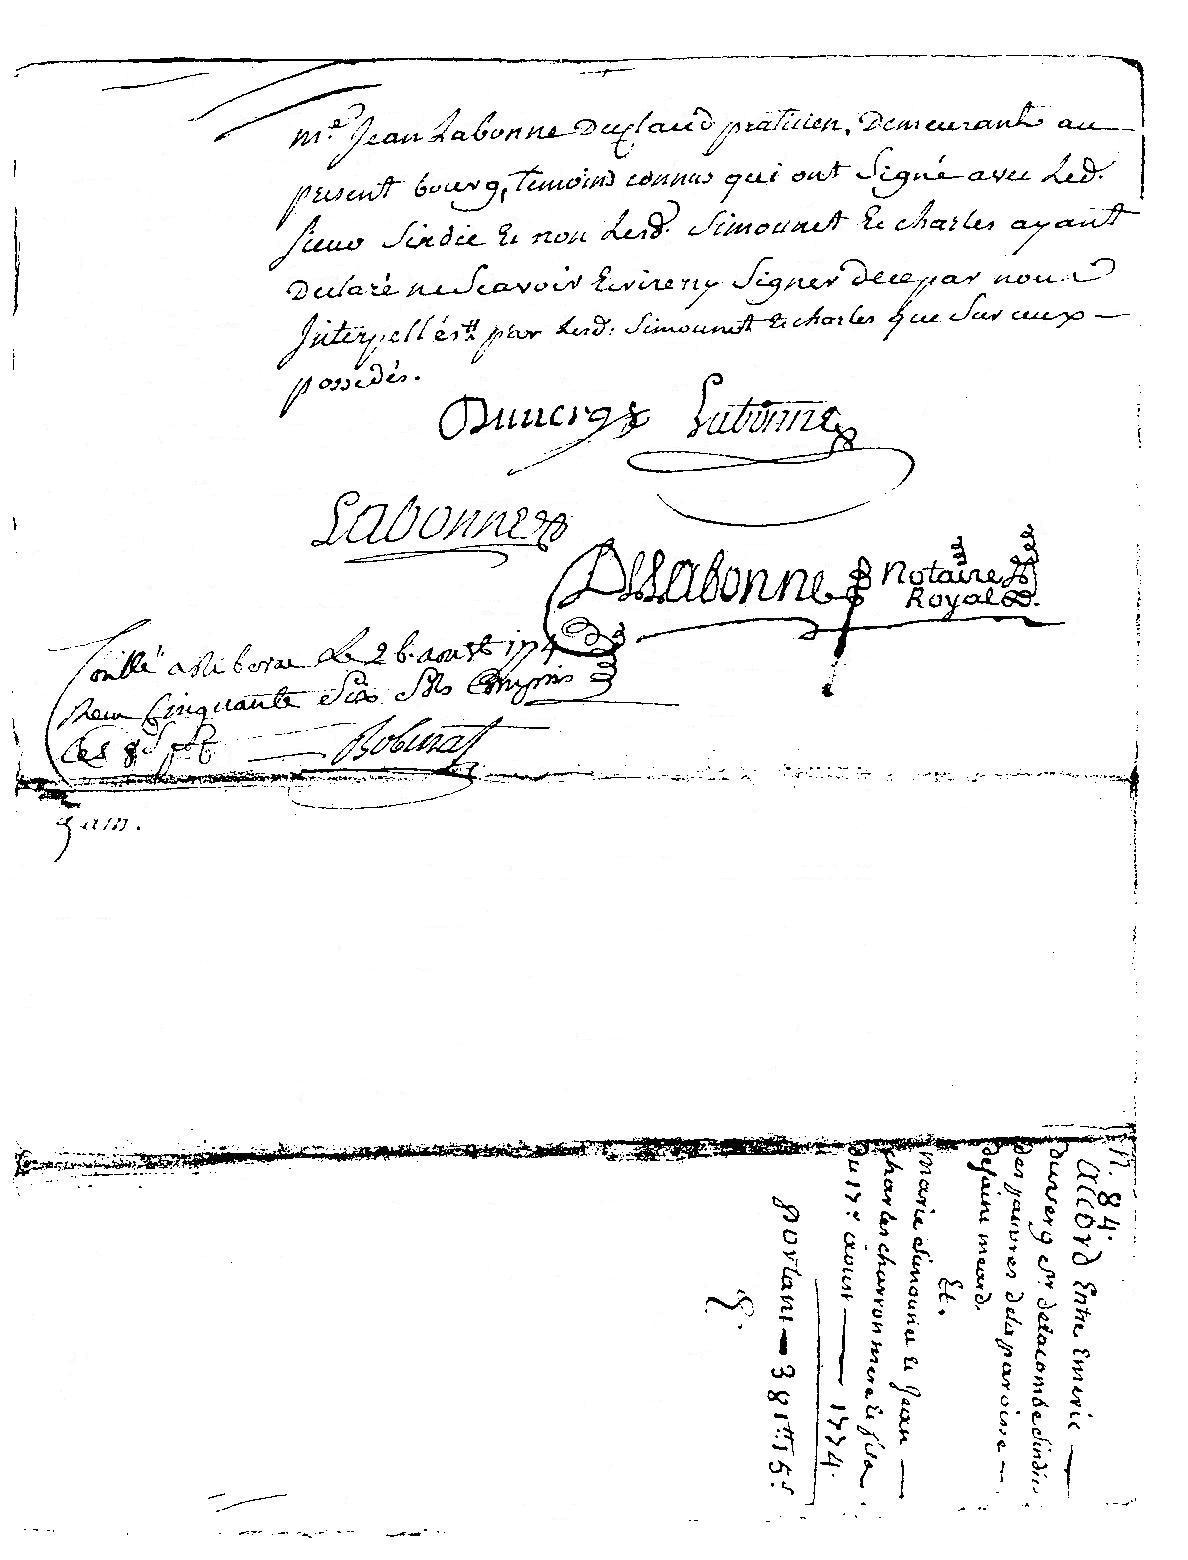 me. Jean Labonne Duclaud praticien, Demeurant au
present bourg, temoins connus qui ont Signé avec Led.
sieur sindic Et non Lesd. Simounet Et charles ayant
Declaré ne Scavoir Ecrire ny Signer de ce par nous
Interpellés par Lesd. Simounet Et charles que Sur eux
possedés.
Duverg Labonne
Labonne
Labonne notaire
Royal.
Conllé a Riberac Le 26. aoust 1774
Recu Cinquante Six Sols Compris
Les 8 s. Robinat
gam.
N. 84.
accord Entre Emeric
duverg sr. de lacombe sindic
des pauvres de la paroisse
de saint meard.
Et.
marie simounet Et Jean
charles charron mere Et fils
du 17e. aoust 1774.
portant 381tt 15s